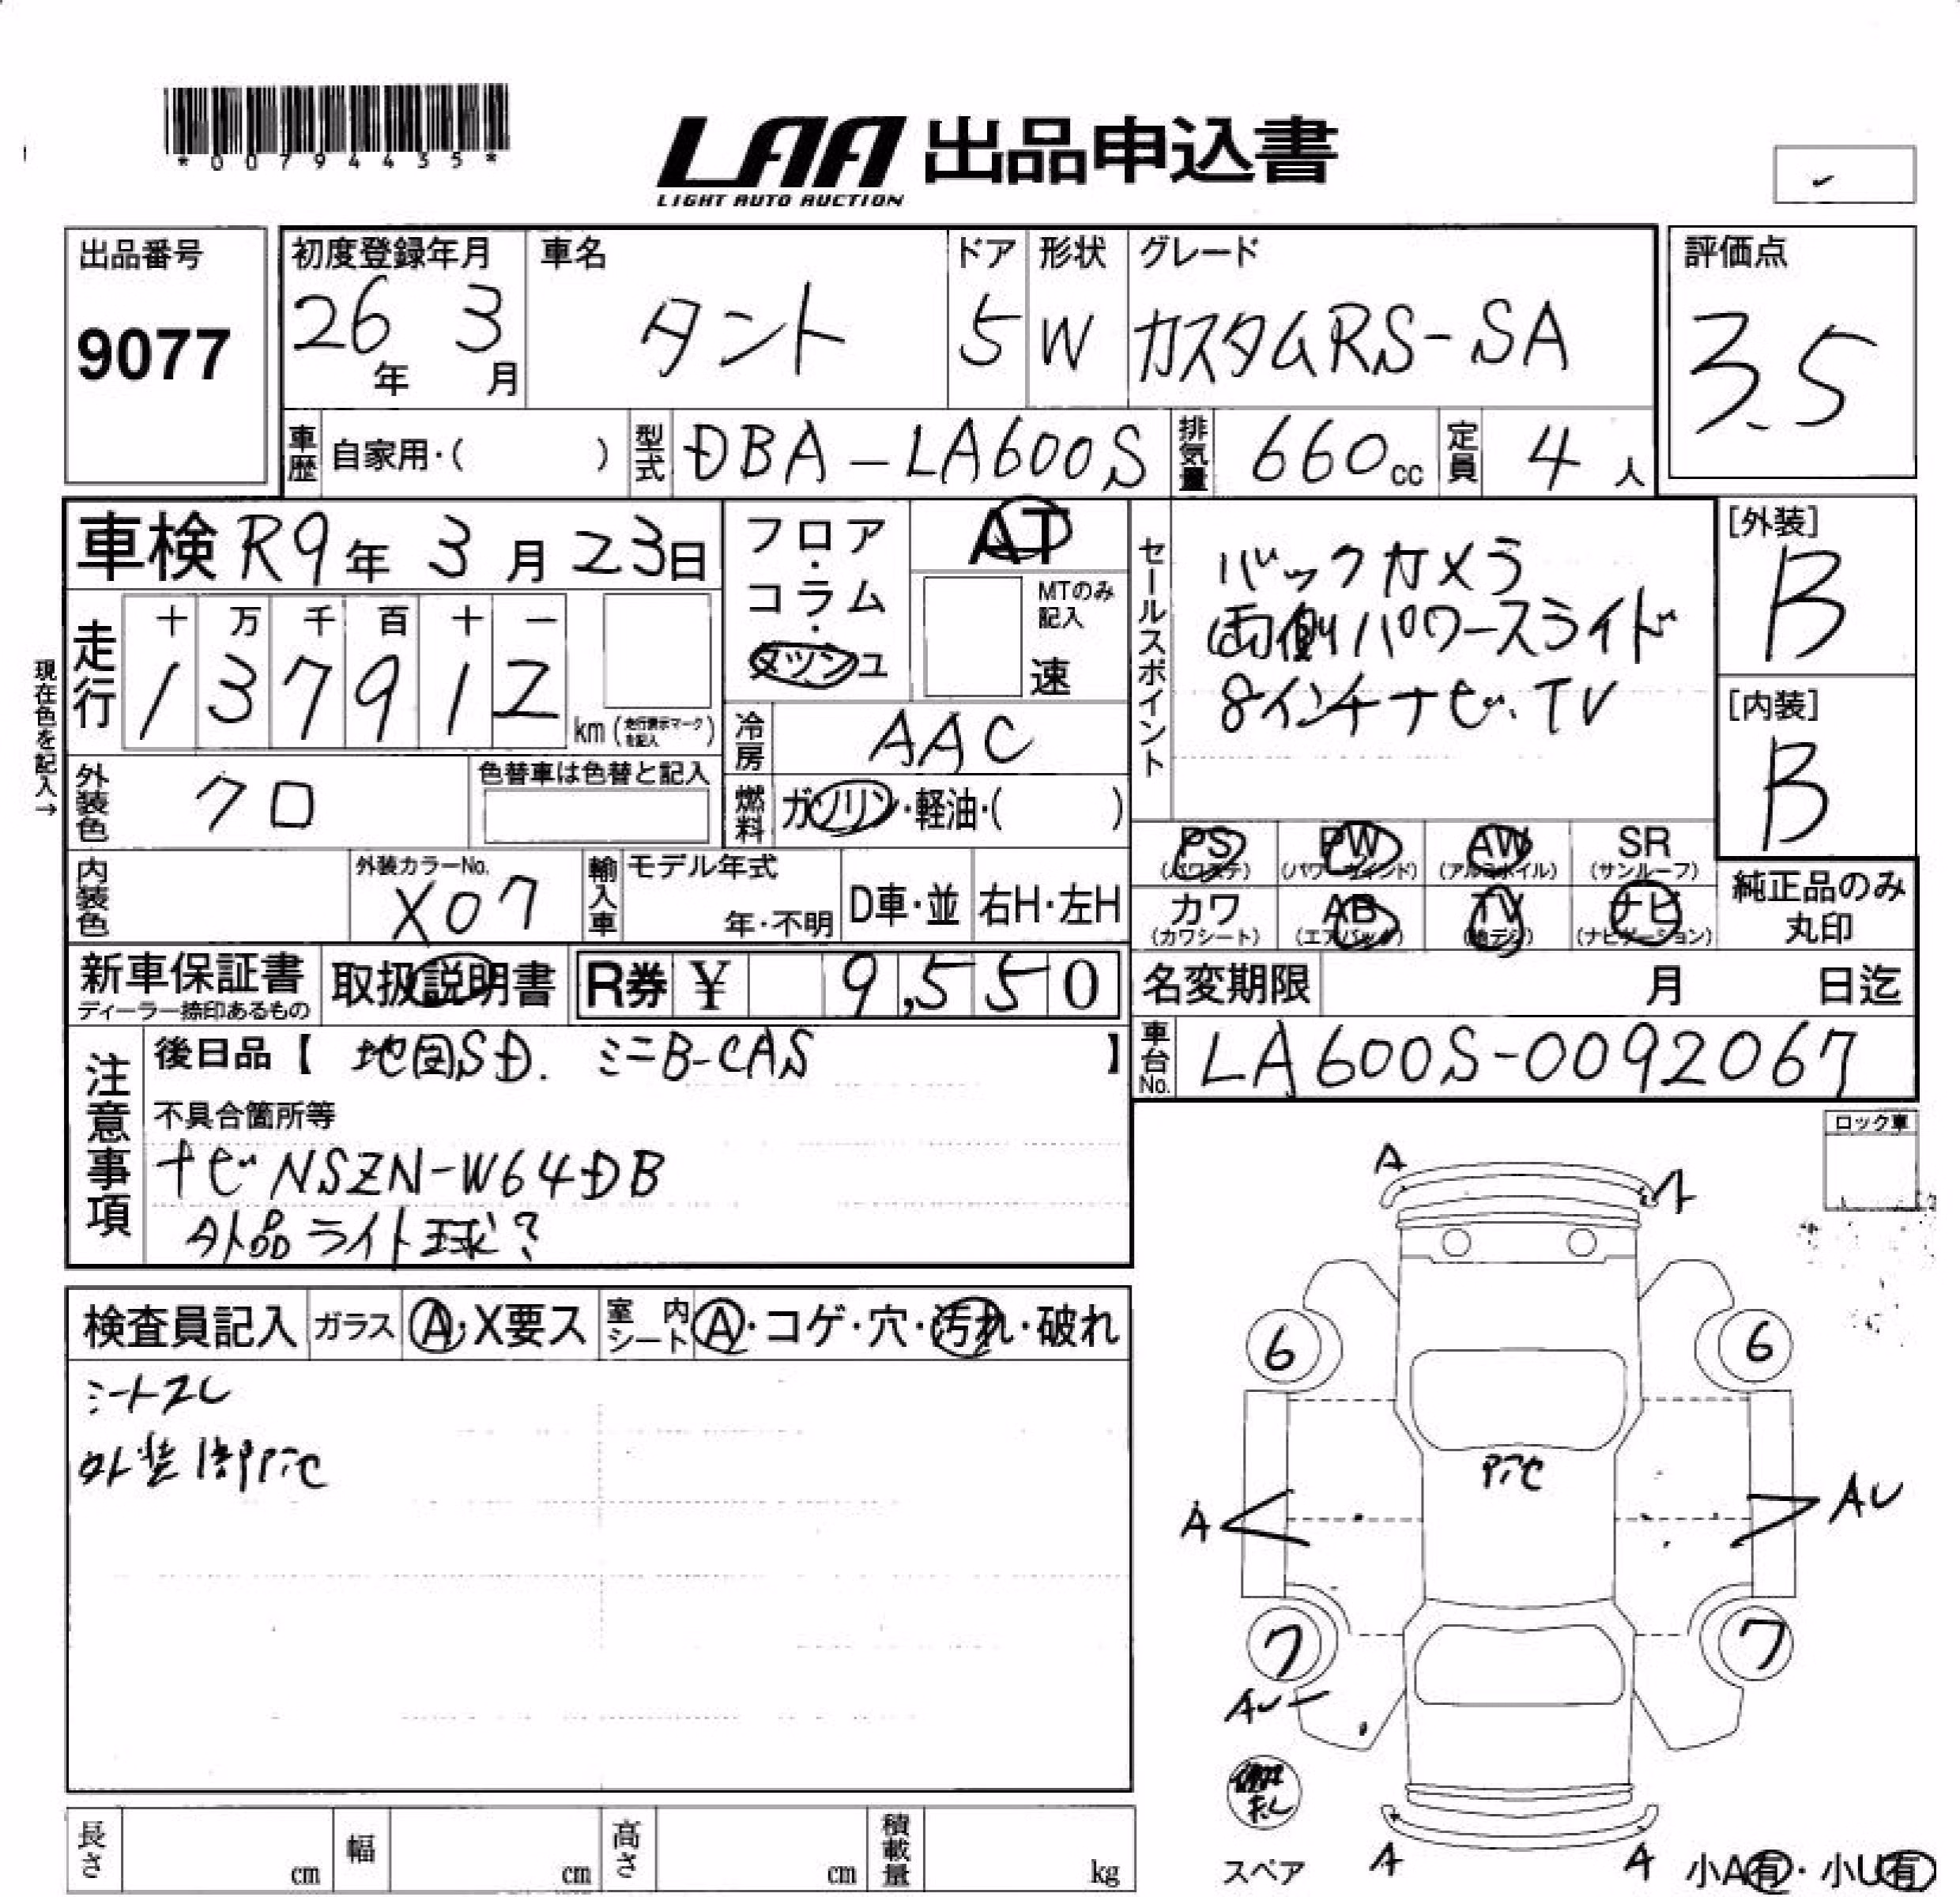 *00794435*
LAA 出品申込書
LIGHT AUTO AUCTION
出品番号
9077
初度登録年月
26年 3月
車名
タント
ドア
5
形状
W
グレード
カスタムRS-SA
評価点
3.5
車歴 自家用・( )
型式 DBA-LA600S
排気量 660cc
定員 4人
車検 R9年 3月 23日
走行
十 万 千 百 十 一
1 3 7 9 1 2
km (走行表示マークを記入)
現在色を記入→
フロア・コラム・ダッシュ
AT
MTのみ記入
速
冷房 AAC
燃料 ガソリン・軽油・( )
セールスポイント
バックカメラ
両側パワースライド
8インチナビ.TV
[外装]
B
[内装]
B
外装色 クロ
色替車は色替と記入
内装色
外装カラーNo.
X07
輸入車
モデル年式
年・不明
D車・並
右H・左H
PS (パワステ)
PW (パワーウインド)
AW (アルミホイル)
SR (サンルーフ)
カワ (カワシート)
AB (エアバック)
TV (地デジ)
ナビ (ナビゲーション)
純正品のみ丸印
新車保証書
ディーラー捺印あるもの
取扱説明書
R券 ¥ 9,550
名変期限 月 日迄
車台No. LA600S-0092067
注意事項
後日品【 地図SD. ミニB-CAS 】
不具合箇所等
ナビNSZN-W64DB
外品ライト球?
ロック車
検査員記入
ガラス A・X要ス
室内シート A・コゲ・穴・汚れ・破れ
シートスレ
外装
A
A
6
6
A
AU
7
7
AU
スペア
A
A
小A有・小U有
長さ cm
幅 cm
高さ cm
積載量 kg